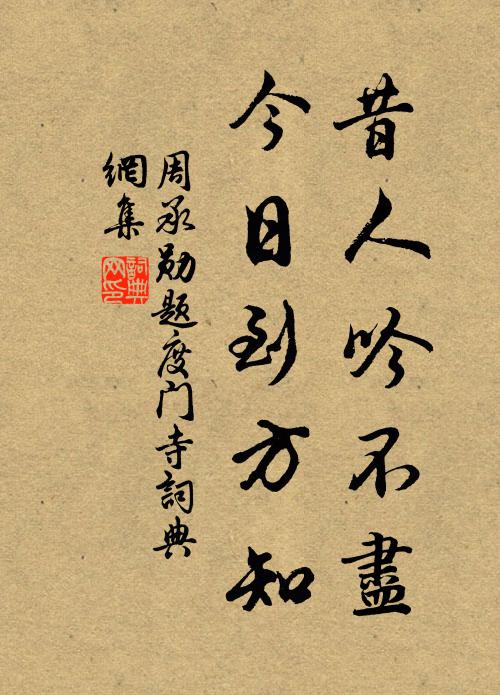 昔人吟不盡
今日到方知
周承勋題度门寺詞典
網集
詞典
网印